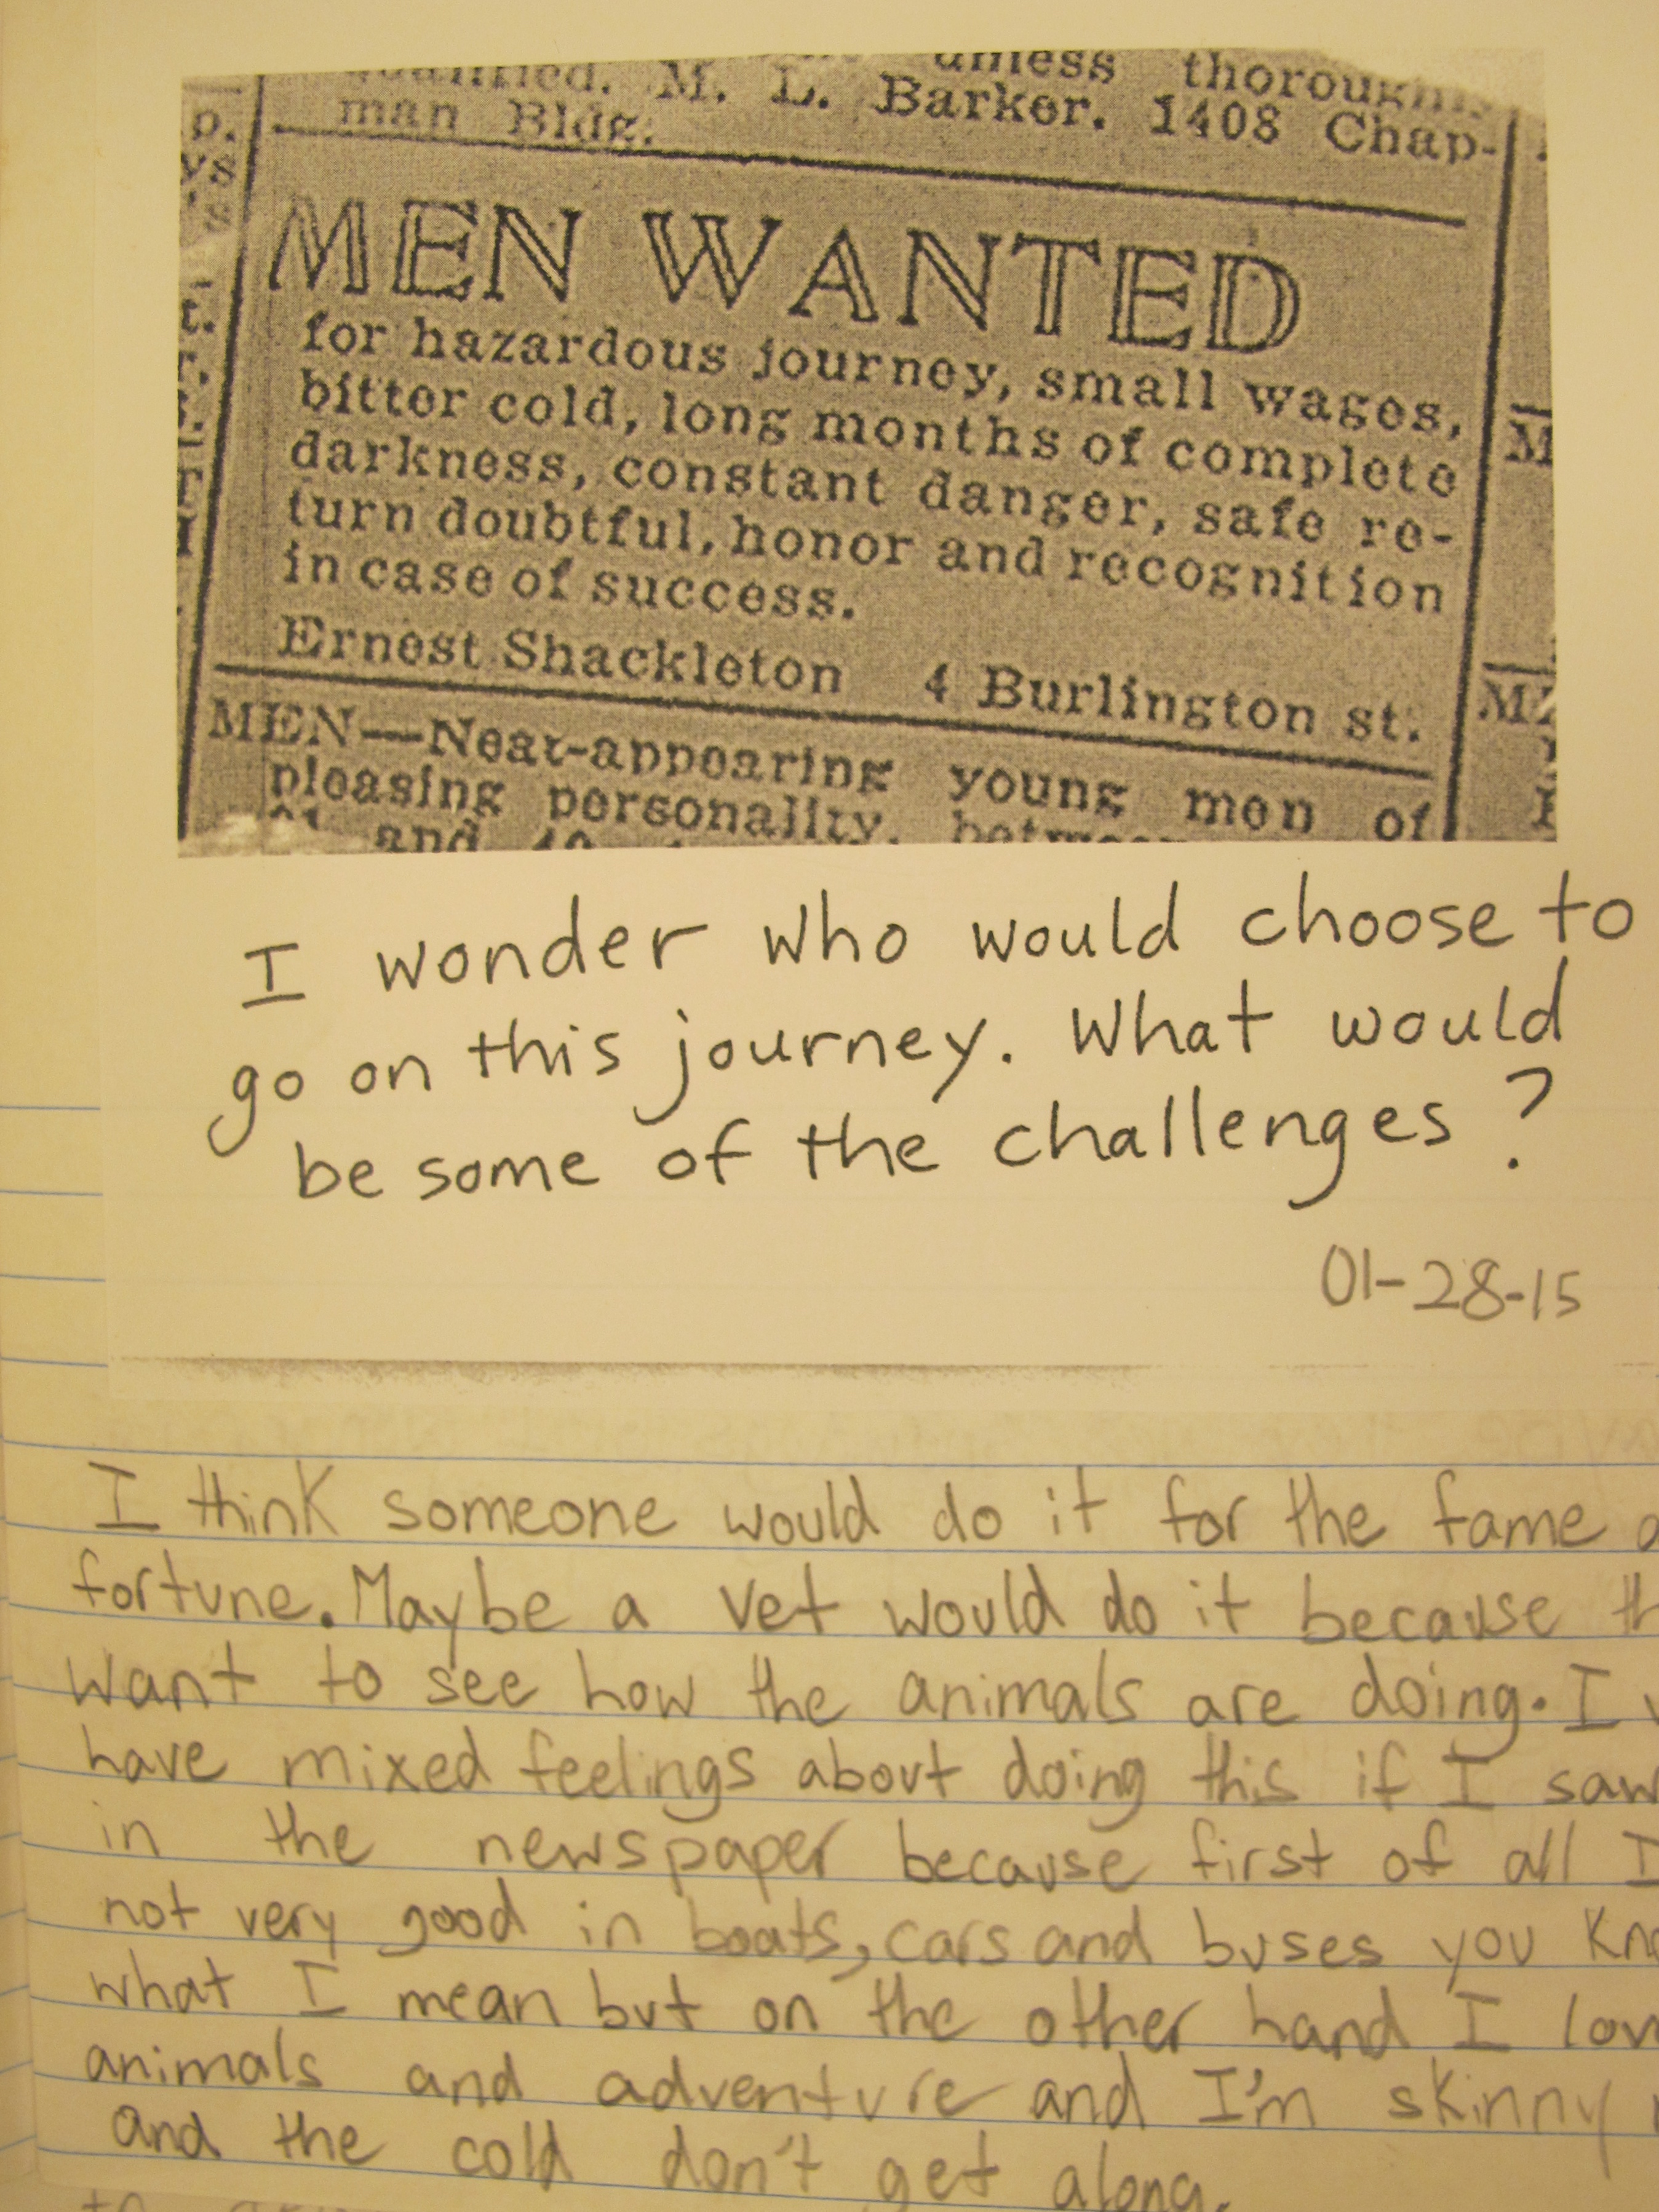 unless thoroughly
M. L. Barker. 1408 Chap-
man Bldg.
p.
ys
MEN WANTED
for hazardous journey, small wages,
bitter cold, long months of complete
darkness, constant danger, safe re-
turn doubtful, honor and recognition
in case of success.
Ernest Shackleton 4 Burlington st.
MEN—Neat-appearing young men of
pleasing personality, between
and 40
t.
r.
s.
T
I
M
I wonder who would choose to
go on this journey. What would
be some of the challenges?
01-28-15
I think someone would do it for the fame
fortune. Maybe a vet would do it because
want to see how the animals are doing. I
have mixed feelings about doing this if I saw
in the newspaper because first of all I
not very good in boats, cars and buses you
what I mean but on the other hand I
animals and adventure and I'm skinny
and the cold don't get along.